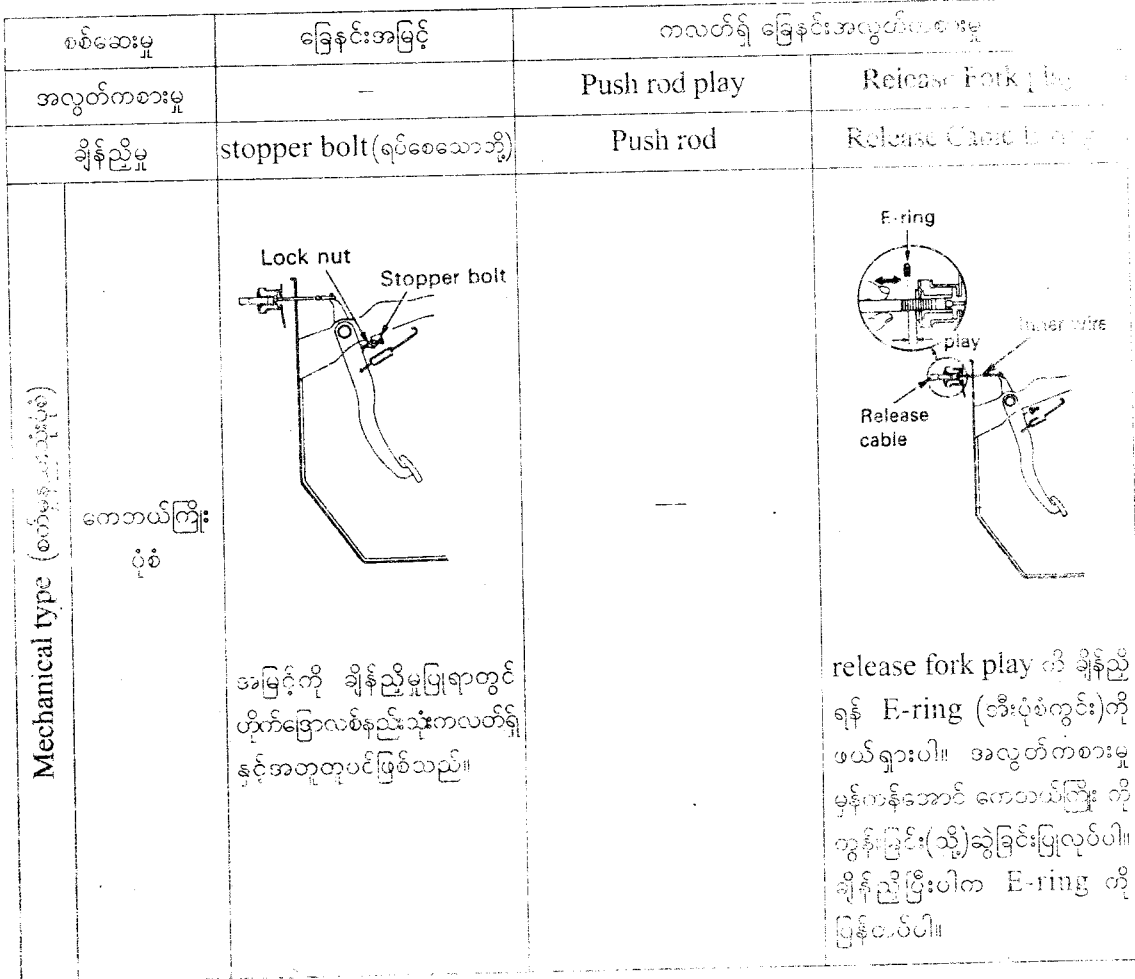 စစ်ဆေးမှု ခြေနင်းအမြင့် ကလတ်ရှ် ခြေနင်းအလွတ်ကစားမှု
အလွတ်ကစားမှု — Push rod play Release Fork play
ချိန်ညှိမှု stopper bolt(ရပ်စေသောဘို့) Push rod Release
Mechanical type
ကေဘယ်ကြိုး
ပုံစံ
Lock nut
Stopper bolt
အမြင့်ကို ချိန်ညှိမှုပြုရာတွင်
ဟိုက်ဒြောလစ်နည်းသုံးကလတ်ရှ်
နှင့်အတူတူပင်ဖြစ်သည်။
—
E-ring
play
Inner wire
Release
cable
release fork play ကို ချိန်ညှိ
ရန် E-ring (အီးပုံစံကွင်း)ကို
ဖယ်ရှားပါ။ အလွတ်ကစားမှု
မှန်ကန်အောင် ကေဘယ်ကြိုး ကို
တွန်းခြင်း(သို့)ဆွဲခြင်းပြုလုပ်ပါ။
ချိန်ညှိပြီးပါက E-ring ကို
ပြန်တပ်ပါ။